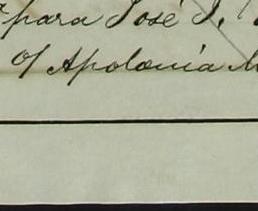 para José J.
of Apolonia